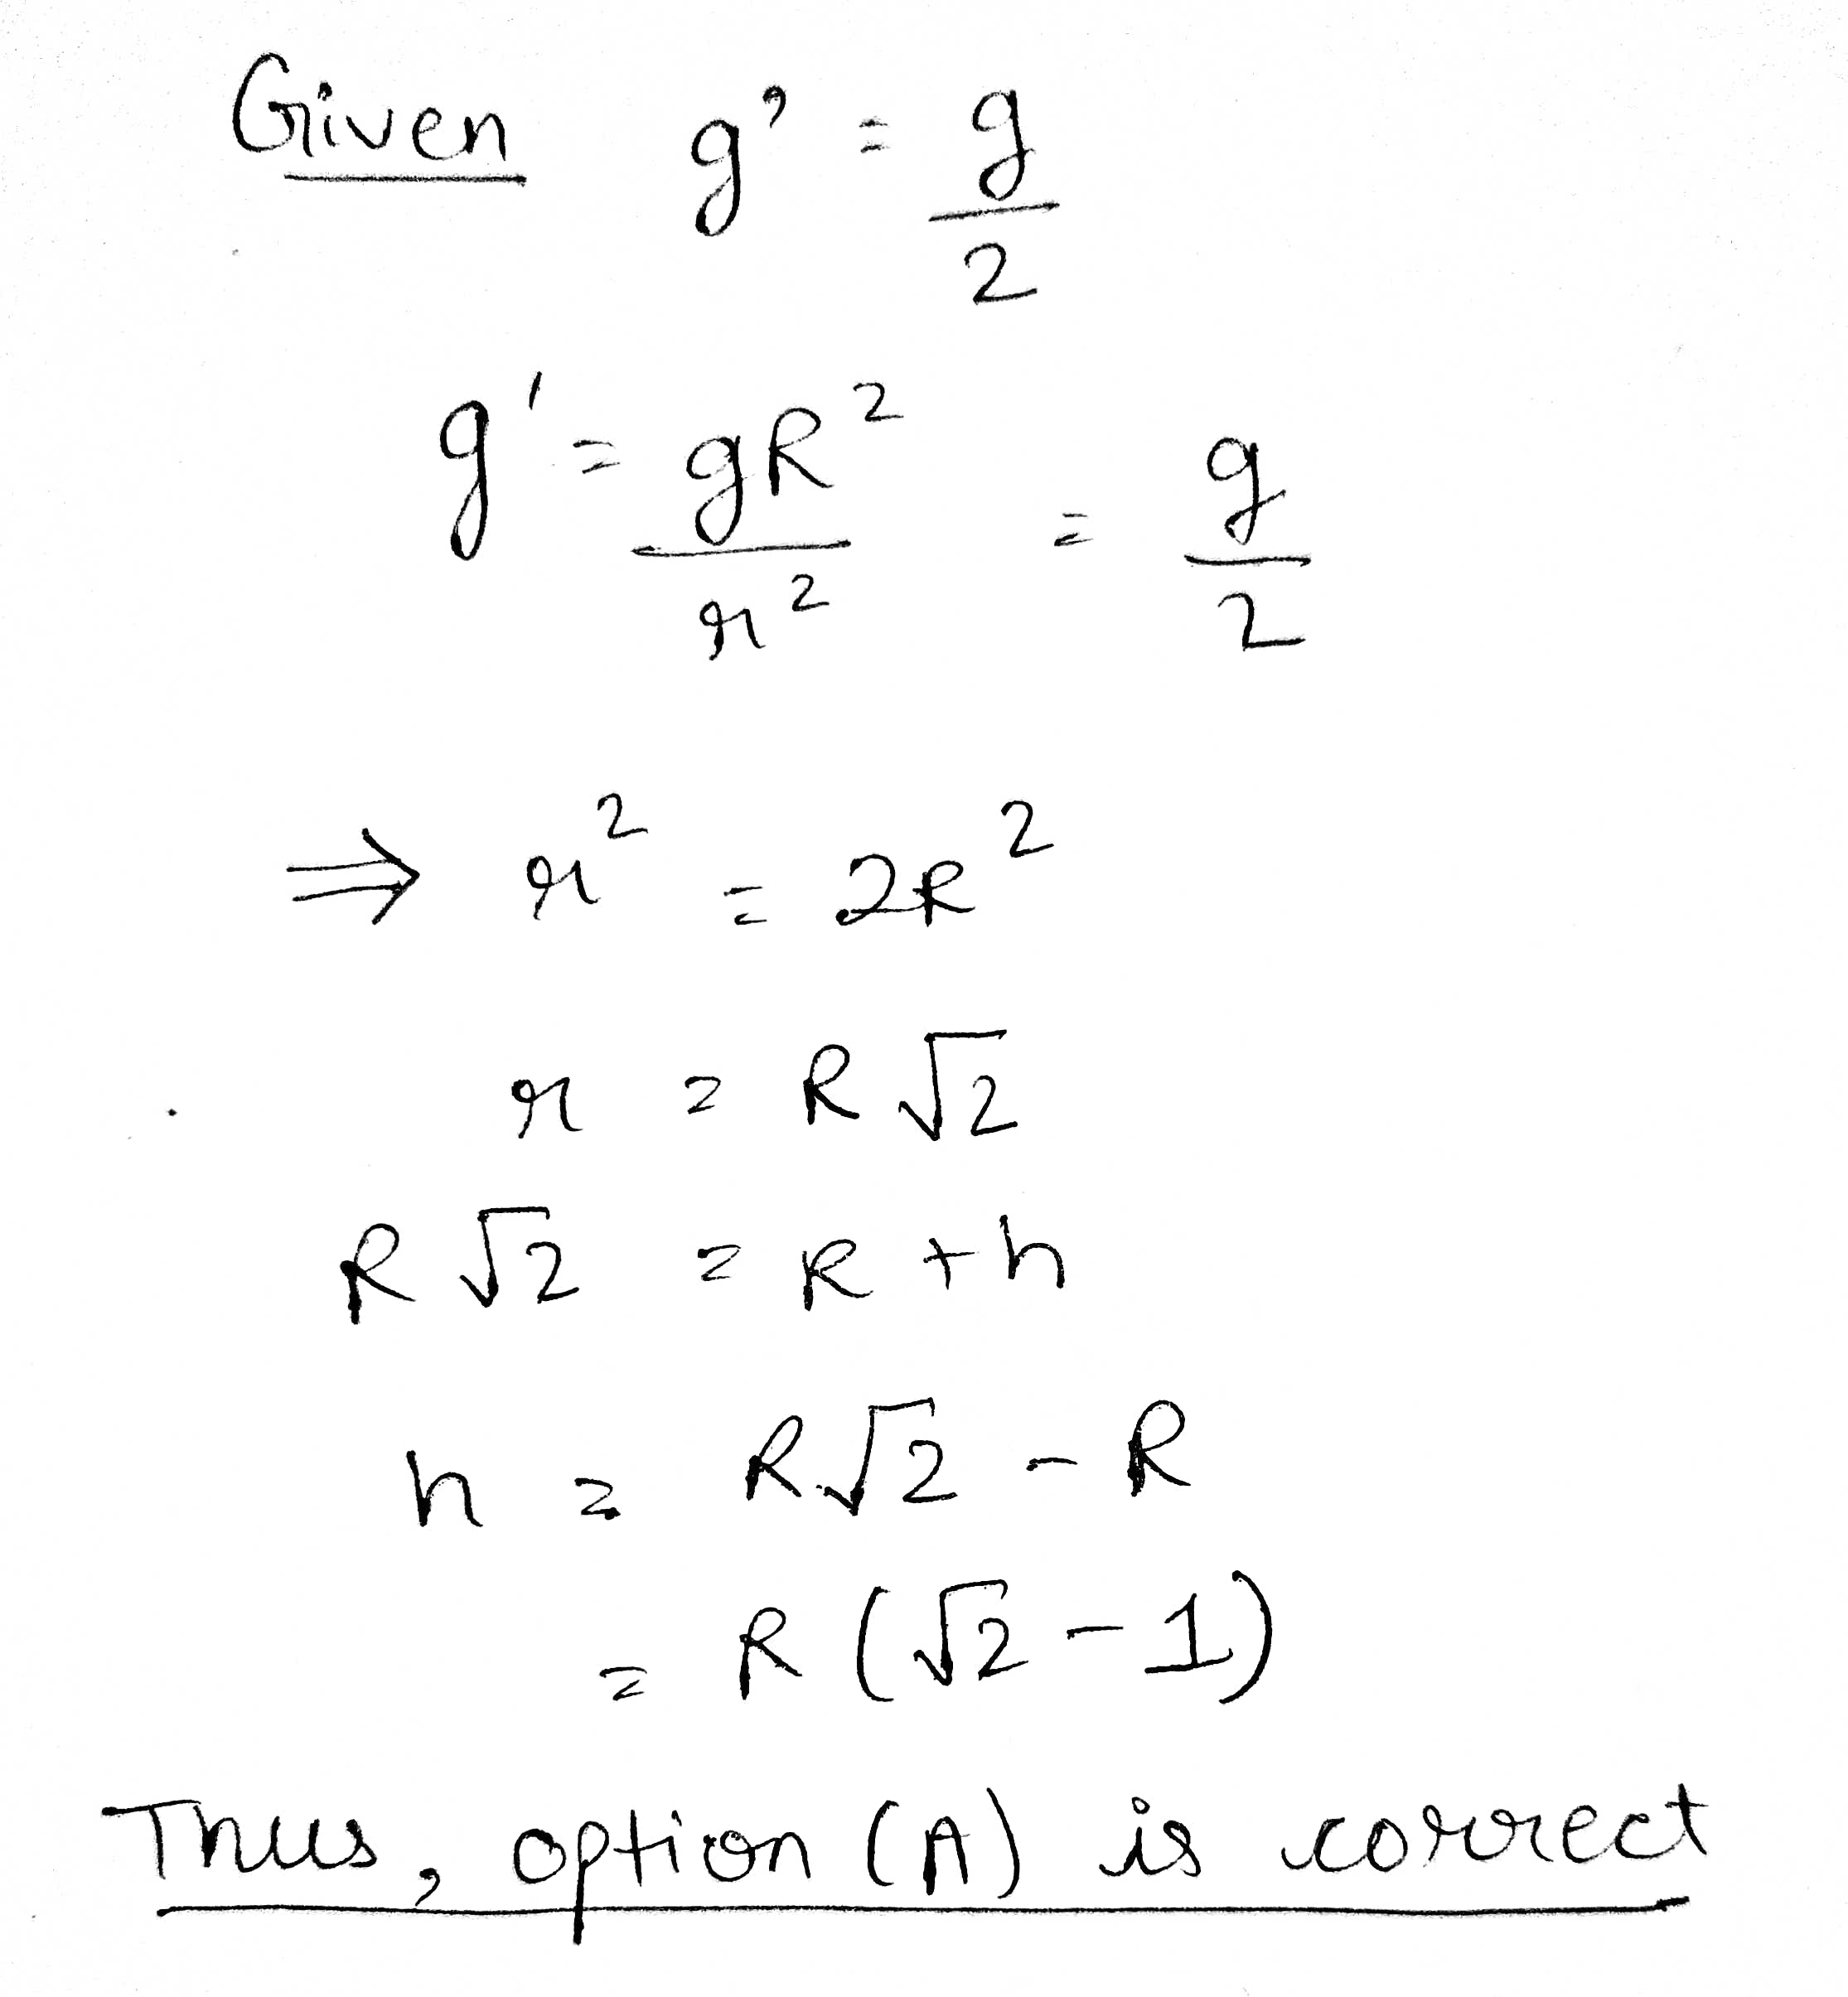 Given g' = g/2
g' = gR²/r² = g/2
⇒ r² = 2R²
r = R√2
R√2 = R + h
h = R√2 - R
= R(√2 - 1)
Thus, option (A) is correct